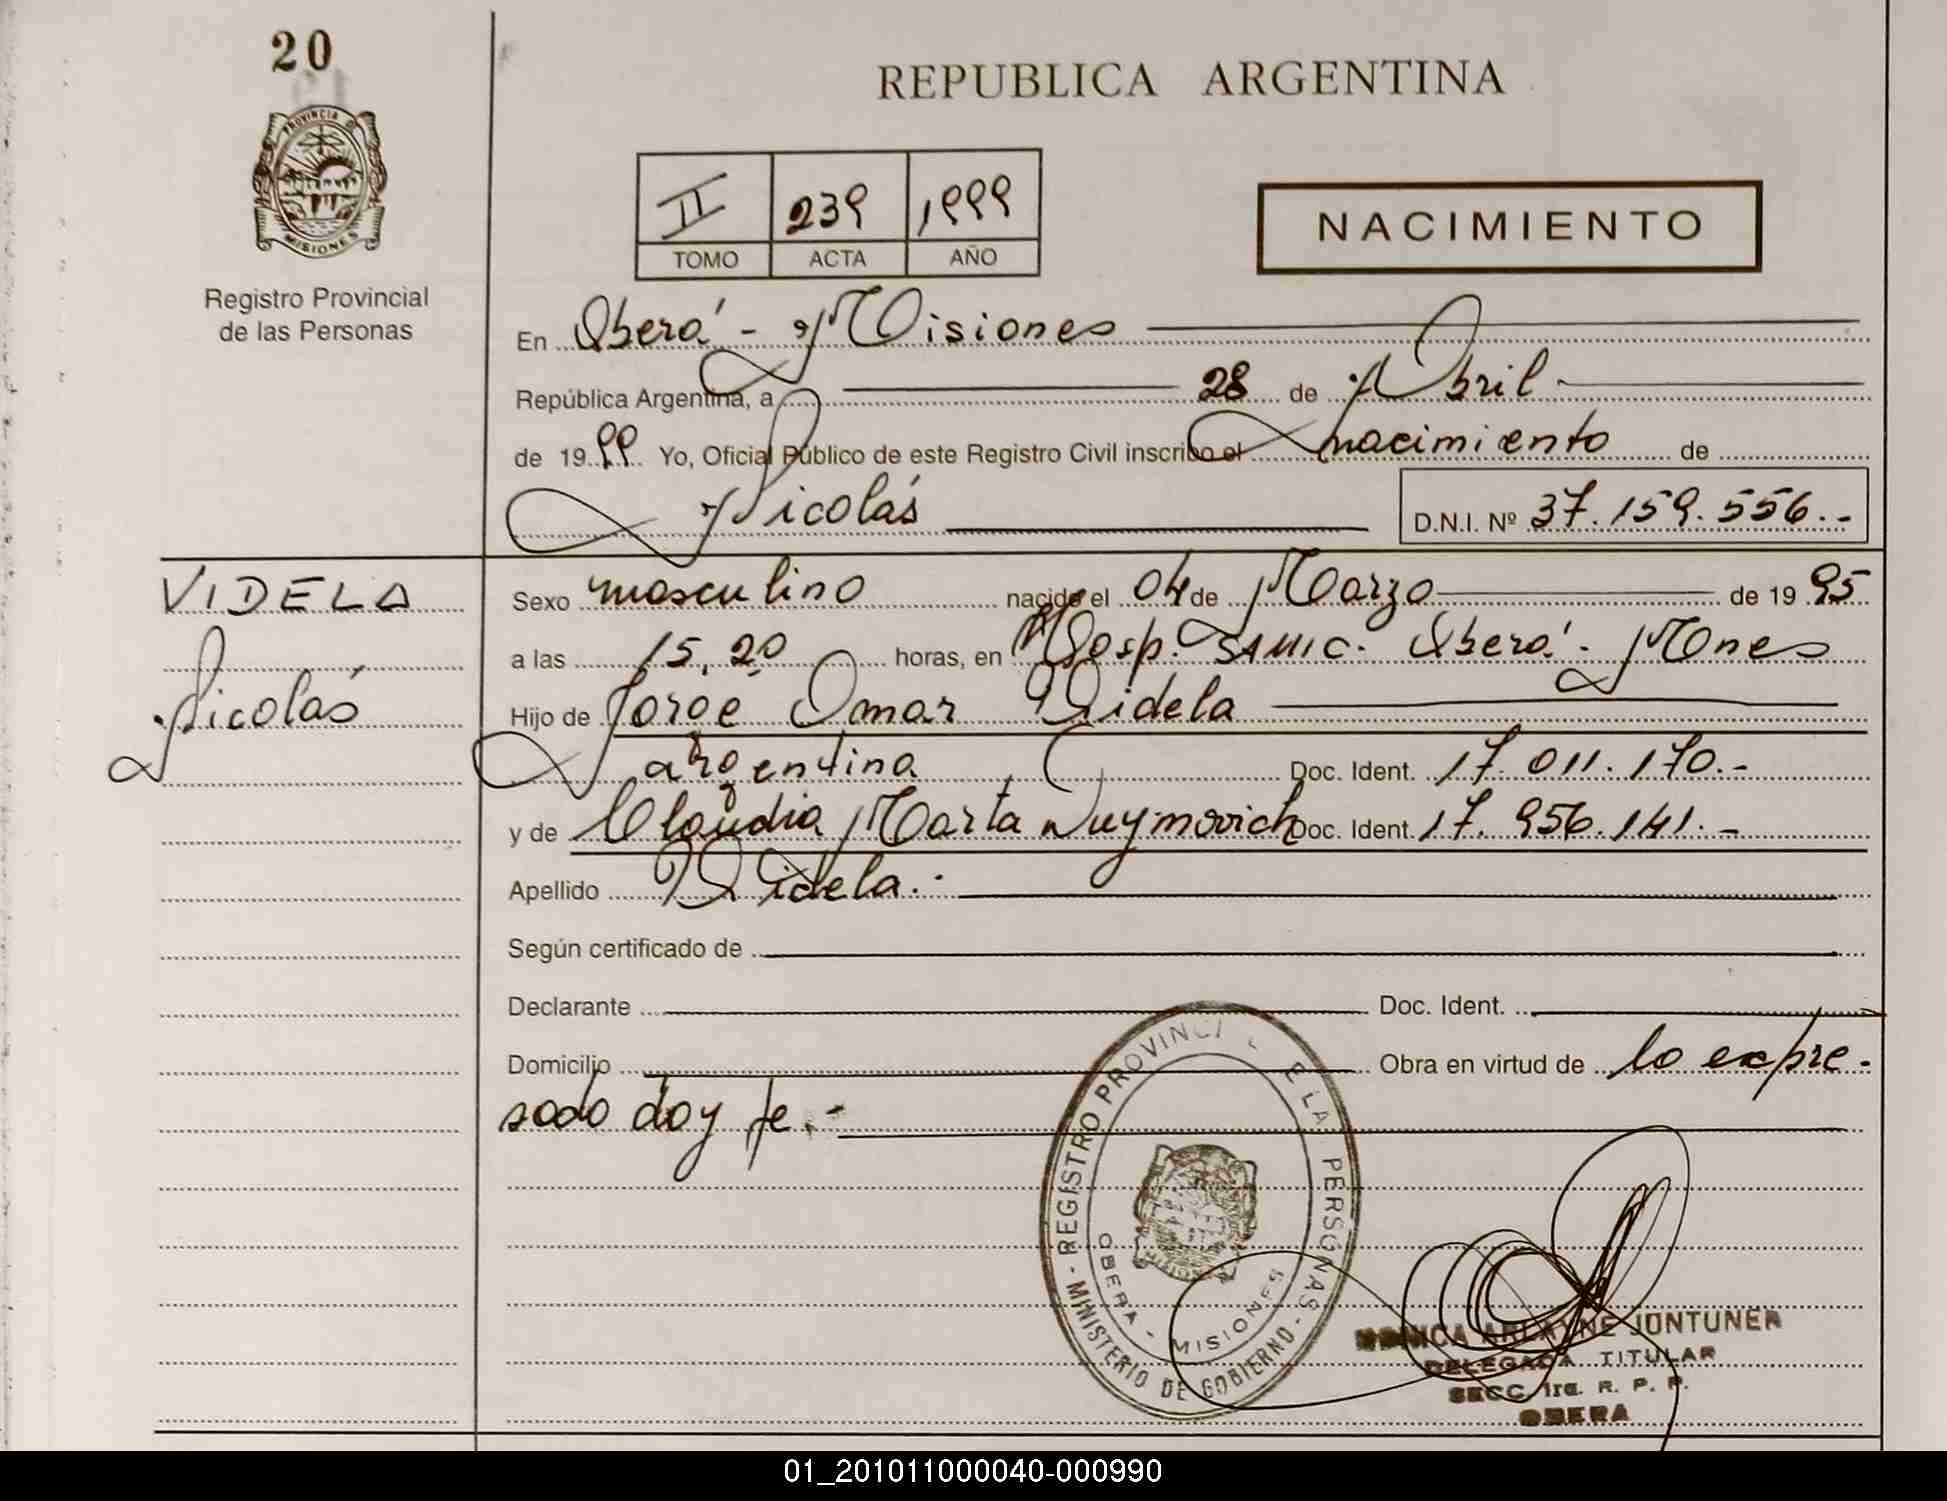 20
PROVINCIA D
MISIONES
Registro Provincial
de las Personas
REPUBLICA ARGENTINA
II 239 1999
TOMO ACTA AÑO
NACIMIENTO
En Oberá - Misiones
República Argentina, a 28 de Abril
de 1999 Yo, Oficial Público de este Registro Civil inscribo el nacimiento de
Nicolás D.N.I. Nº 37.159.556.-
VIDELA
Nicolás
Sexo masculino nacido el 04 de Marzo de 1995
a las 15,20 horas, en Hosp. SAMIC. Oberá. Mnes
Hijo de Jorge Omar Videla
argentina Doc. Ident. 17.011.170.-
y de Claudia Marta Duymovich Doc. Ident. 17.956.141.-
Apellido Videla.-
Según certificado de
Declarante Doc. Ident.
Domicilio Obra en virtud de lo expre-
sado doy fe.-
- REGISTRO PROVINCI E LA PERSONAS -
MINISTERIO DE GOBIERNO
OBERA - MISIONES
MONICA ARLAYNE JONTUNEN
DELEGADA TITULAR
SECC. 1ra. R. P. P.
OBERA
01_201011000040-000990